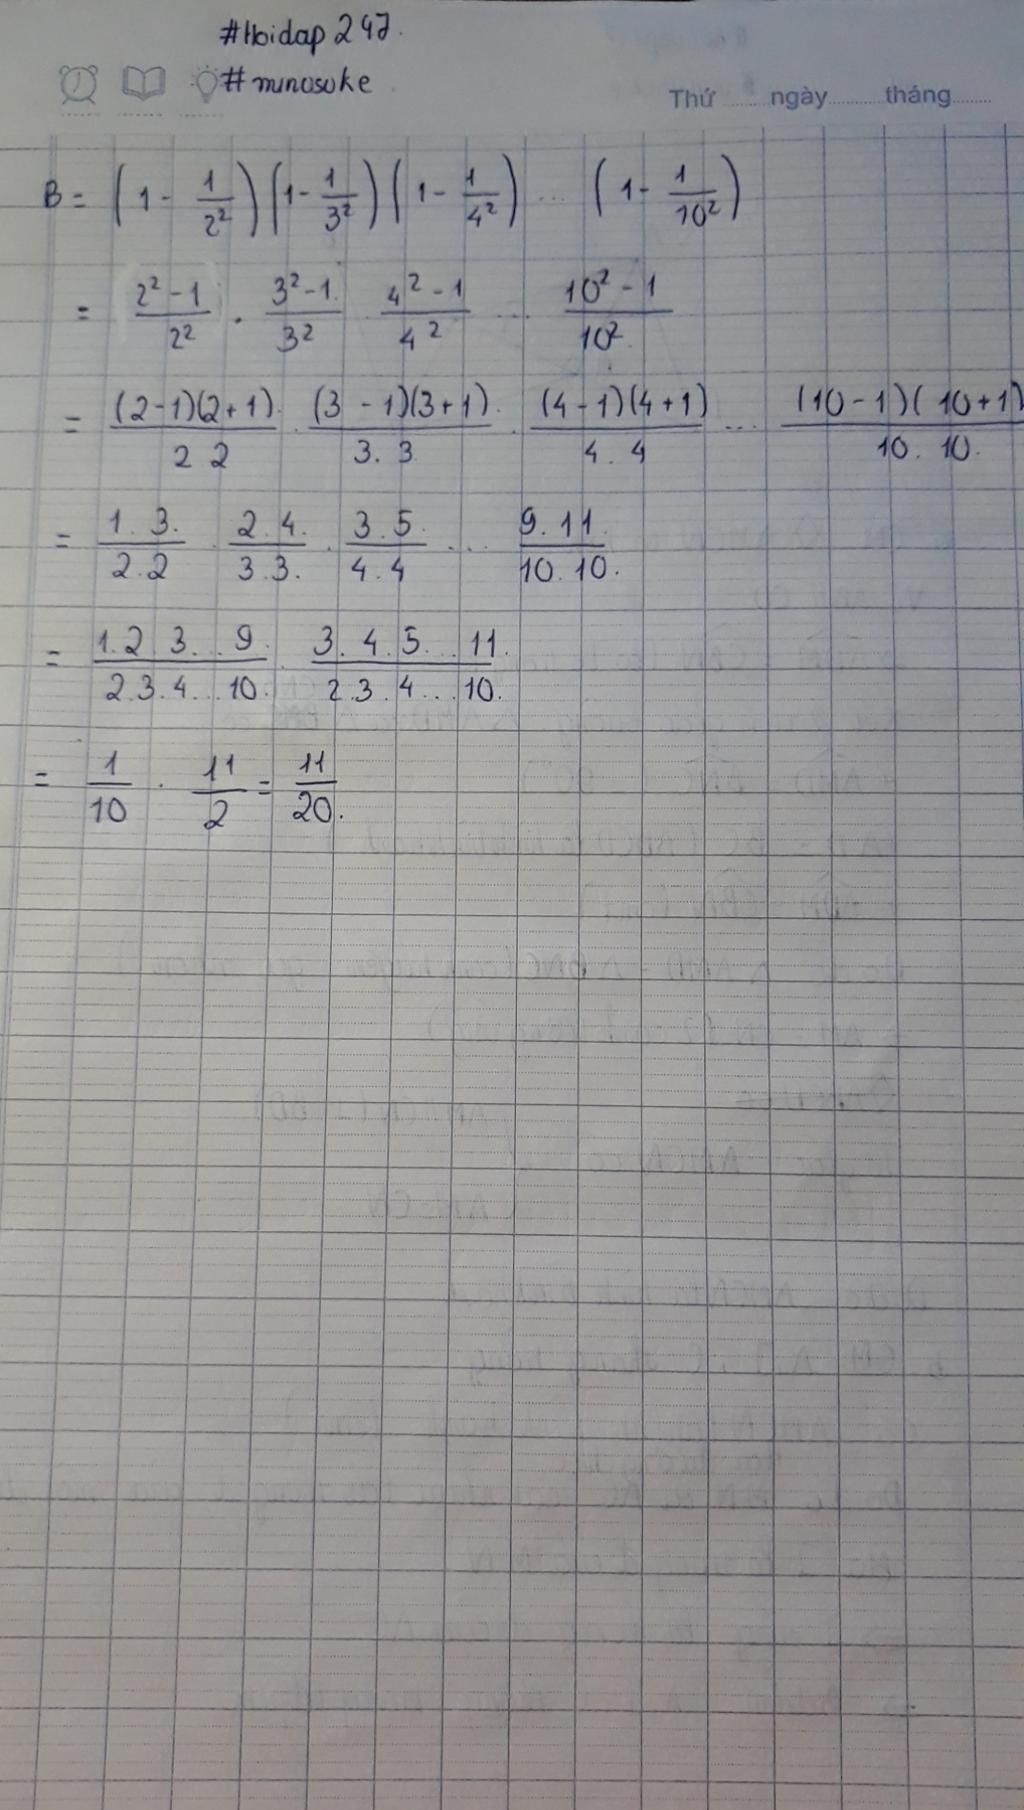 #Hoidap 247.
# munosuke
Thứ ........ ngày ........ tháng ........
B = (1 - 1/2²) (1 - 1/3²) (1 - 1/4²) ... (1 - 1/10²)
= (2² - 1)/2² . (3² - 1)/3² (4² - 1)/4² ... (10² - 1)/10²
= (2-1)(2+1)/2 2 . (3-1)(3+1)/3.3 . (4-1)(4+1)/4.4 ... (10-1)(10+1)/10.10.
= 1.3./2.2 . 2.4./3.3. . 3.5./4.4 ... 9.11./10.10.
= 1.2 3...9./2.3.4...10. . 3.4.5...11./2.3.4...10.
= 1/10 . 11/2 = 11/20.